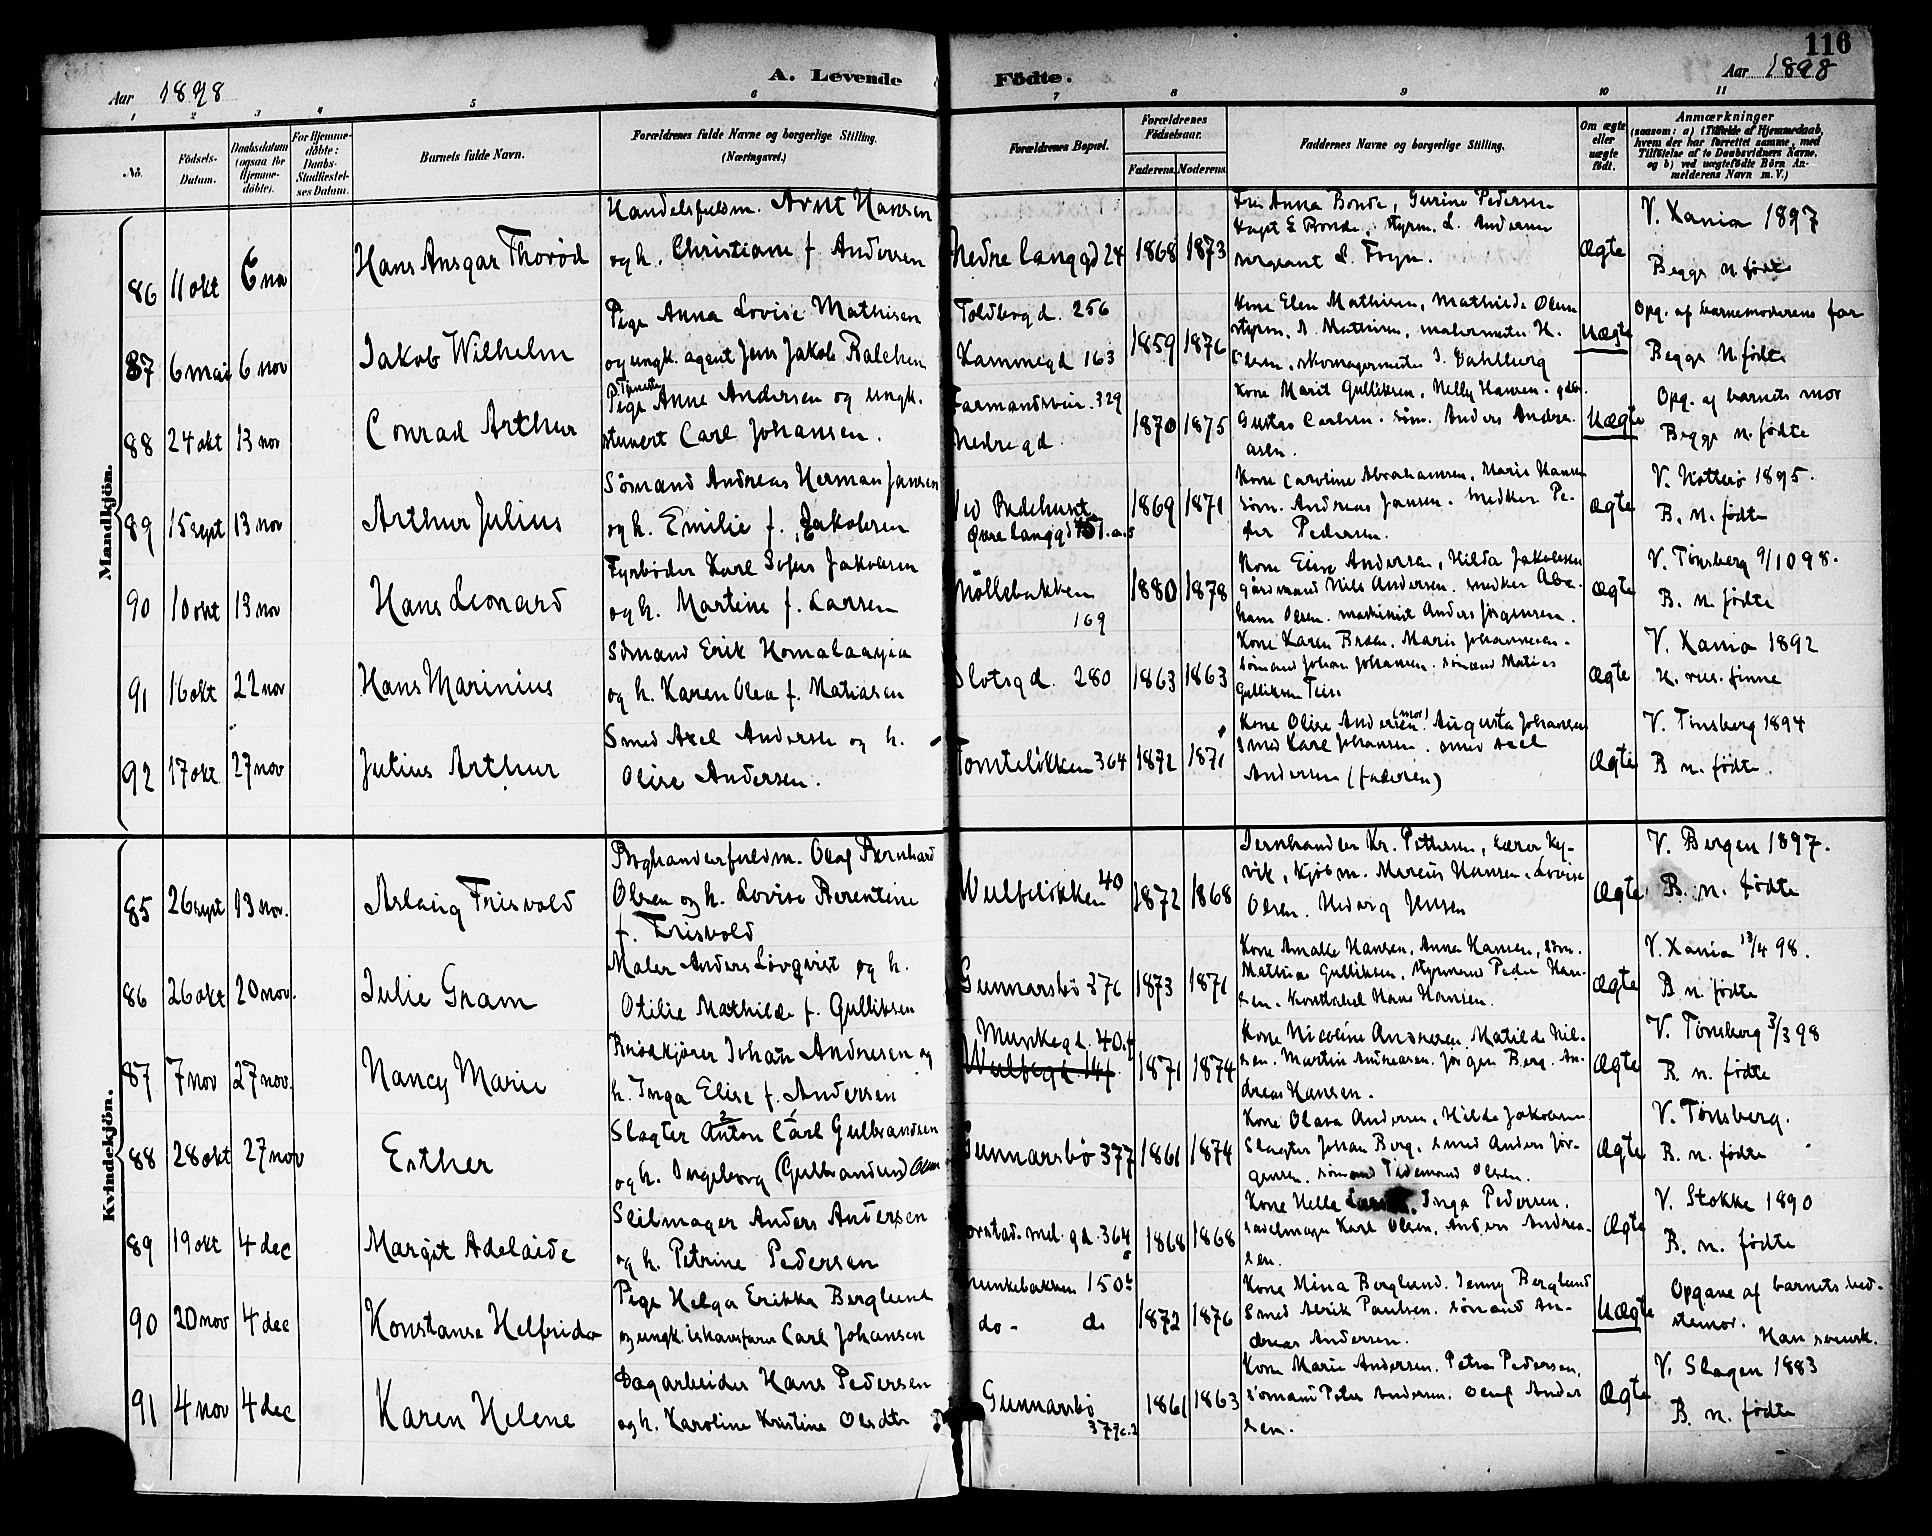 116
Aar 1898
A. Levende Födte.
Aar 1898
1 2 3 4 5 6 7 8 9 10 11
No.
Födsels-Datum.
Daabsdatum (ogsaa for Hjemme-döbte).
For Hjemme-döbte: Daabs-Stadfæstel-ses Datum.
Barnets fulde Navn.
Forældrenes fulde Navne og borgerlige Stilling. (Næringsvei.)
Forældrenes Bopæl.
Forældrenes Födselsaar.
Faderens. Moderens.
Faddernes Navne og borgerlige Stilling.
Om ægte eller uægte född.
Anmærkninger
(saasom: a) Tilfælde af Hjemmedaab, hvem der har forrettet samme, med Tilföielse af to Daabsvidners Navne, og b) ved uægtefödte Börn Anmelderens Navn m. V.)
Mandkjön.
86 11 okt 6 no
Hans Ansgar Thorød
Handelsfuldm. Arnt Hansen
og h. Christiane f. Andersen
Nedre langgd 24
1868 1873
Frk Anna Bonde, Gurine Pedersen
Kapt E Bonde, styrm. L. Andersen
sergeant L. Foyn.
Ægte
V. Xania 1897
Begge n. fødte
87 6 mai 6 nov
Jakob Wilhelm
Pige Anna Lovise Mathisen
og ungk. agent Jens Jakob Balchen
Toldbogd. 256
Kammegd 163
1859 1876
Kone Elen Mathisen, Mathilde Olsen
styrm. A. Mathisen, malermester H.
Olsen, skomagermester J. Dahlberg
Uægte
Opg. af barnemoderens far
Begge N. fødte
88 24 okt 13 nov
Conrad Arthur
Pige Anne Andersen og ungk.
stuert Carl Johansen.
Farmandsvei. 329
Nedregd.
1870 1875
Kone Marit Gulliksen, Nelly Hansen, gdbr.
Gustav Carlsen. Søm. Anders Andre-
asen.
Uægte
Opg. af barnets mor
Begge n. fødte
89 15 sept 13 nov
Arthur Julius
Sømand Andreas Herman Jansen
og h. Emilie f. Jakobsen
Ved Bedehuset
Øvre langgd
1869 1871
Kone Caroline Abrahamsen, Marie Hansen
Søm. Andreas Jansen. Snedker Pe-
der Pedersen.
Ægte
V. Nøtterø 1895.
B. n. fødte
90 10 okt 13 nov
Hans Leonard
Fyrbøder Karl Sofus Jakobsen
og h. Martine f. Larsen
Möllebakken
169
1880 1878
Kone Elise Andersen, Hilda Jakobsen
gårdmand Nils Andersen. snedker Abra-
ham Olsen. maskinist Anders Jørgensen.
Ægte
V. Tønsberg 9/10 98.
B. n. fødte
91 16 okt 22 nov
Hans Marinius
Sømand Erik Homalaaja
og h. Karen Olea f. Matiasen
Slotsgd. 280
1863 1863
Kone Karen Braa. Marie Johannesen.
sømand Johan Johansen. sømand Matias
Gulliksen Teie
Ægte
V. Xania 1892
H. rus. finne
92 17 okt 27 nov
Julius Arthur
Smed Axel Andersen og h.
Olise Andersen.
Tomteløkken 364
1872 1871
Kone Olise Andersen (mor) Augusta Johansen
Smed Karl Johansen. smed Axel
Andersen (faderen)
Ægte
V. Tønsberg 1894
B n. fødte
Kvindekjön.
85 26 sept 13 nov.
Aslaug Frisvold
Boghanderfuldm. Olaf Bernhard
Olsen og h. Lovise Berentine
f. Frisvold
Wulfeløkken 40
1872 1868
Jernhandler Kr. Pettersen, lærer Ky-
vik, Kjøbm. Marius Hansen, Lovise
Olsen. Hedvig Jensen
Ægte
V. Bergen 1897.
B. n. fødte
86 26 okt 20 nov.
Julie Gram
Maler Anders Lövqvist og h.
Otilie Mathilde f. Gulliksen
Gunnarsbø 376
1873 1871
Kone Amalie Hansen, Anna Hansen, søm.
Mathias Gulliksen, styrmand Peder Han-
sen. Konstabel Hans Hansen.
Ægte
V. Xania 13/4 98.
B n. fødte
87 7 nov 27 nov.
Nancy Marie
Brødkjører Johan Andresen og
h. Inga Elise f. Andersen
Munkegd. 40.f
1871 1874
Kone Nicoline Andresen. Matilde Nil-
sen. Martin Andreasen. Jørgen Berg. An-
dreas Hansen.
Ægte
V. Tønsberg 3/3 98
B. n. fødte
88 28 okt 27 nov
Esther
Slagter Anton Carl Gulbrandsen
og h. Ingeborg (Gulbrandsen) Olsen
Gunnarsbø 377
1861 1874
Kone Olava Andersen, Hilda Jakobsen
Slagter Johan Berg. smed Anders Jør-
gensen. sømand Tidemand Olsen.
Ægte
V. Tønsberg.
B. n. fødte
89 19 okt 4 dec
Margit Adelaide
Seilmager Anders Andersen
og h. Petrine Pedersen
364
1868 1868
Kone Helle Inga Pedersen.
sadelmager Karl Olsen, Anders Andrea-
sen.
Ægte
V. Stokke 1890
B. n. fødte
90 20 nov 4 dec
Konstanse Helfrida
Pige Helga Erikka Berglund
og ungk. ishavsfarer Carl Johansen
Munkebakken 150b
do - do
1872 1876
Kone Mina Berglund. Jenny Berglund
Smed Alrik Paulsen. sømand An-
dreas Andersen.
Uægte
Opgave af barnets bed-
stemor.
Han svensk.
91 4 nov 4 dec
Karen Helene
Dagarbeider Hans Pedersen
og h. Karoline Kristine Olsdtr
Gunnarsbø
377c.2
1861 1863
Kone Marie Andersen. Petra Pedersen,
sømand Peter Andersen. Oluf Ander
sen.
Ægte
V. Slagen 1883
B. n. fødte